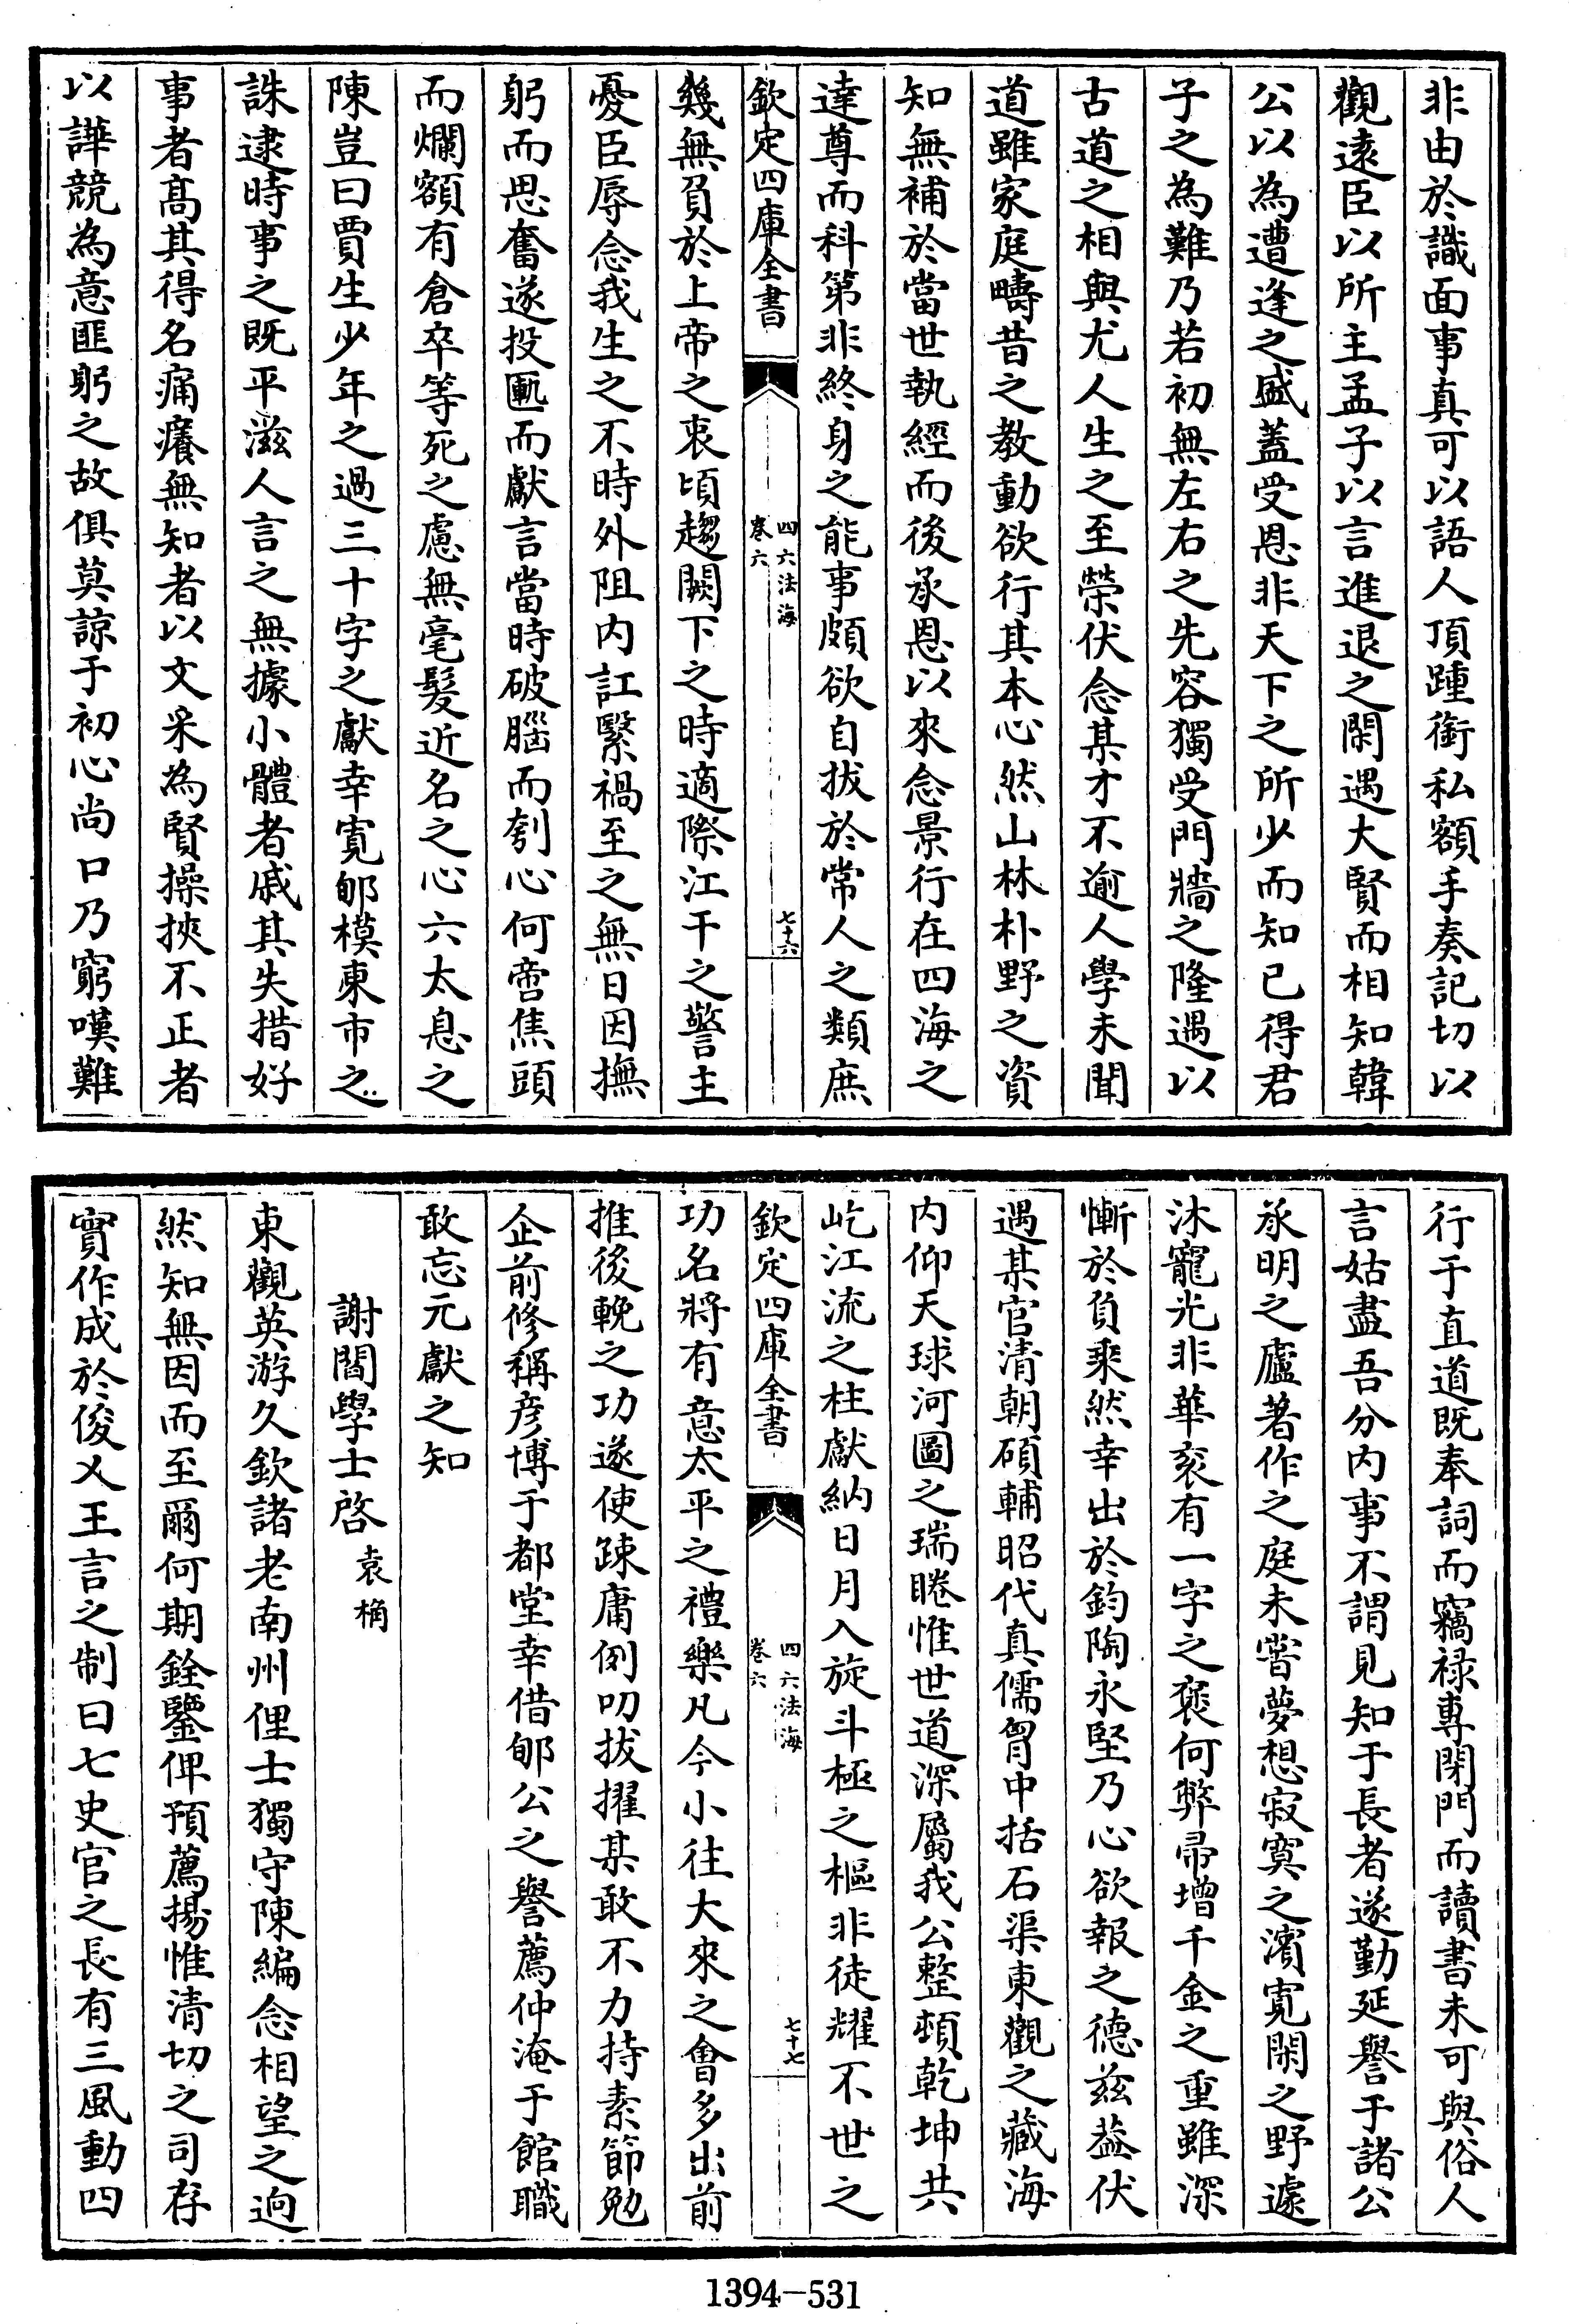 非由於識面事真可以語人頂踵銜私額手奏記切以
觀遠臣以所主孟子以言進退之閑遇大賢而相知韓
公以為遭逢之盛蓋受恩非天下之所少而知已得君
子之為難乃若初無左右之先容獨受門牆之隆遇以
古道之相與尤人生之至榮伏念某才不逾人學未聞
道雖家庭疇昔之教動欲行其本心然山林朴野之資
知無補於當世執經而後承恩以來念景行在四海之
達尊而科第非終身之能事頗欲自拔於常人之類庶
欽定四庫全書
四六法海
卷六
七十六
幾無負於上帝之衷頃趨闕下之時適際江干之警主
憂臣辱念我生之不時外阻内訌緊禍至之無日因撫
躬而思奮遂投匭而獻言當時破腦而刳心何啻焦頭
而爛額有倉卒等死之慮無毫髮近名之心六太息之
陳豈曰賈生少年之過三十字之獻幸寛郇模東市之
誅逮時事之既平滋人言之無據小體者戚其失措好
事者髙其得名痛癢無知者以文采為賢操挾不正者
以譁競為意匪躬之故俱莫諒于初心尚口乃窮嘆難
行于直道既奉詞而竊禄專閉門而讀書未可與俗人
言姑盡吾分内事不謂見知于長者遂勤延譽于諸公
承明之廬著作之庭未嘗夢想寂寞之濱寛閑之野遽
沐寵光非華衮有一字之褒何弊帚增千金之重雖深
慚於負乘然幸出於鈞陶永堅乃心欲報之德兹葢伏
遇某官清朝碩輔昭代真儒胷中括石渠東觀之藏海
内仰天球河圖之瑞睠惟世道深屬我公整頓乾坤共
屹江流之柱獻納日月入旋斗極之樞非徒耀不世之
欽定四庫全書
四六法海
卷六
七十七
功名將有意太平之禮樂凡今小往大來之會多出前
推後輓之功遂使踈庸例叨拔擢某敢不力持素節勉
企前修稱彦博于都堂幸借郇公之譽薦仲淹于館職
敢忘元獻之知
謝閻學士啓 袁桷
東觀英游久欽諸老南州俚士獨守陳編念相望之逈
然知無因而至爾何期銓鑒俾預薦揚惟清切之司存
實作成於俊乂王言之制曰七史官之長有三風動四
1394-531